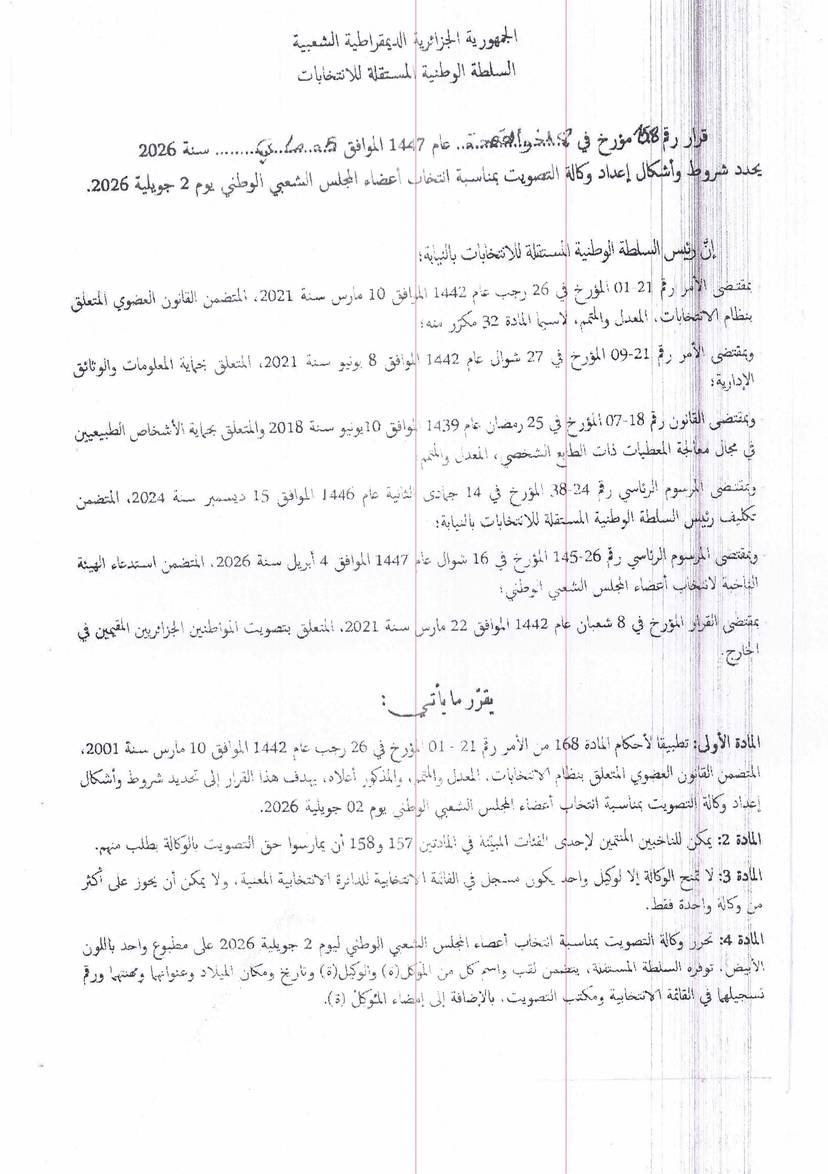 الجمهورية الجزائرية الديمقراطية الشعبية
السلطة الوطنية المستقلة للانتخابات
قرار رقم 158 مؤرخ في عام 1447 الموافق سنة 2026
يحدد شروط وأشكال إعداد وكالة التصويت بمناسبة انتخاب أعضاء المجلس الشعبي الوطني يوم 2 جويلية 2026.
إنّ رئيس السلطة الوطنية المستقلة للانتخابات بالنيابة؛
بمقتضى الأمر رقم 21-01 المؤرخ في 26 رجب عام 1442 الموافق 10 مارس سنة 2021، المتضمن القانون العضوي المتعلق
بنظام الانتخابات، المعدل والمتمم، لاسيما المادة 32 مكرّر منه؛
وبمقتضى الأمر رقم 21-09 المؤرخ في 27 شوال عام 1442 الموافق 8 يونيو سنة 2021، المتعلق بحماية المعلومات والوثائق
الإدارية؛
وبمقتضى القانون رقم 18-07 المؤرخ في 25 رمضان عام 1439 الموافق 10يونيو سنة 2018 والمتعلق بحماية الأشخاص الطبيعيين
في مجال معالجة المعطيات ذات الطابع الشخصي، المعدل والمتمم
وبمقتضى المرسوم الرئاسي رقم 24-38 المؤرخ في 14 جمادى الثانية عام 1446 الموافق 15 ديسمبر سنة 2024، المتضمن
تكليف رئيس السلطة الوطنية المستقلة للانتخابات بالنيابة؛
وبمقتضى المرسوم الرئاسي رقم 26-145 المؤرخ في 16 شوال عام 1447 الموافق 4 أبريل سنة 2026، المتضمن استدعاء الهيئة
الناخبة لانتخاب أعضاء المجلس الشعبي الوطني؛
بمقتضى القرار المؤرخ في 8 شعبان عام 1442 الموافق 22 مارس سنة 2021، المتعلق بتصويت المواطنين الجزائريين المقيمين في
الخارج.
يقرّر ما يأتــي:
المادة الأولى: تطبيقا لأحكام المادة 168 من الأمر رقم 21 - 01 المؤرخ في 26 رجب عام 1442 الموافق 10 مارس سنة 2001،
المتضمن القانون العضوي المتعلق بنظام الانتخابات، المعدل والمتمم، والمذكور أعلاه، يهدف هذا القرار إلى تحديد شروط وأشكال
إعداد وكالة التصويت بمناسبة انتخاب أعضاء المجلس الشعبي الوطني يوم 02 جويلية 2026.
المادة 2: يمكن للناخبين المنتمين لإحدى الفئات المبيّنة في المادتين 157 و158 أن يمارسوا حق التصويت بالوكالة بطلب منهم.
المادة 3: لا تمنح الوكالة إلا لوكيل واحد يكون مسجل في القائمة الانتخابية للدائرة الانتخابية المعنية، ولا يمكن أن يحوز على أكثر
من وكالة واحدة فقط.
المادة 4: تحرر وكالة التصويت بمناسبة انتخاب أعضاء المجلس الشعبي الوطني ليوم 2 جويلية 2026 على مطبوع واحد باللون
الأبيض، توفره السلطة المستقلة، يتضمن لقب واسم كل من الموكل(ة) والوكيل(ة) وتاريخ ومكان الميلاد وعنوانهما ومهنتهما ورقم
تسجيلهما في القائمة الانتخابية ومكتب التصويت، بالإضافة إلى إمضاء المُوكلْ (ة).